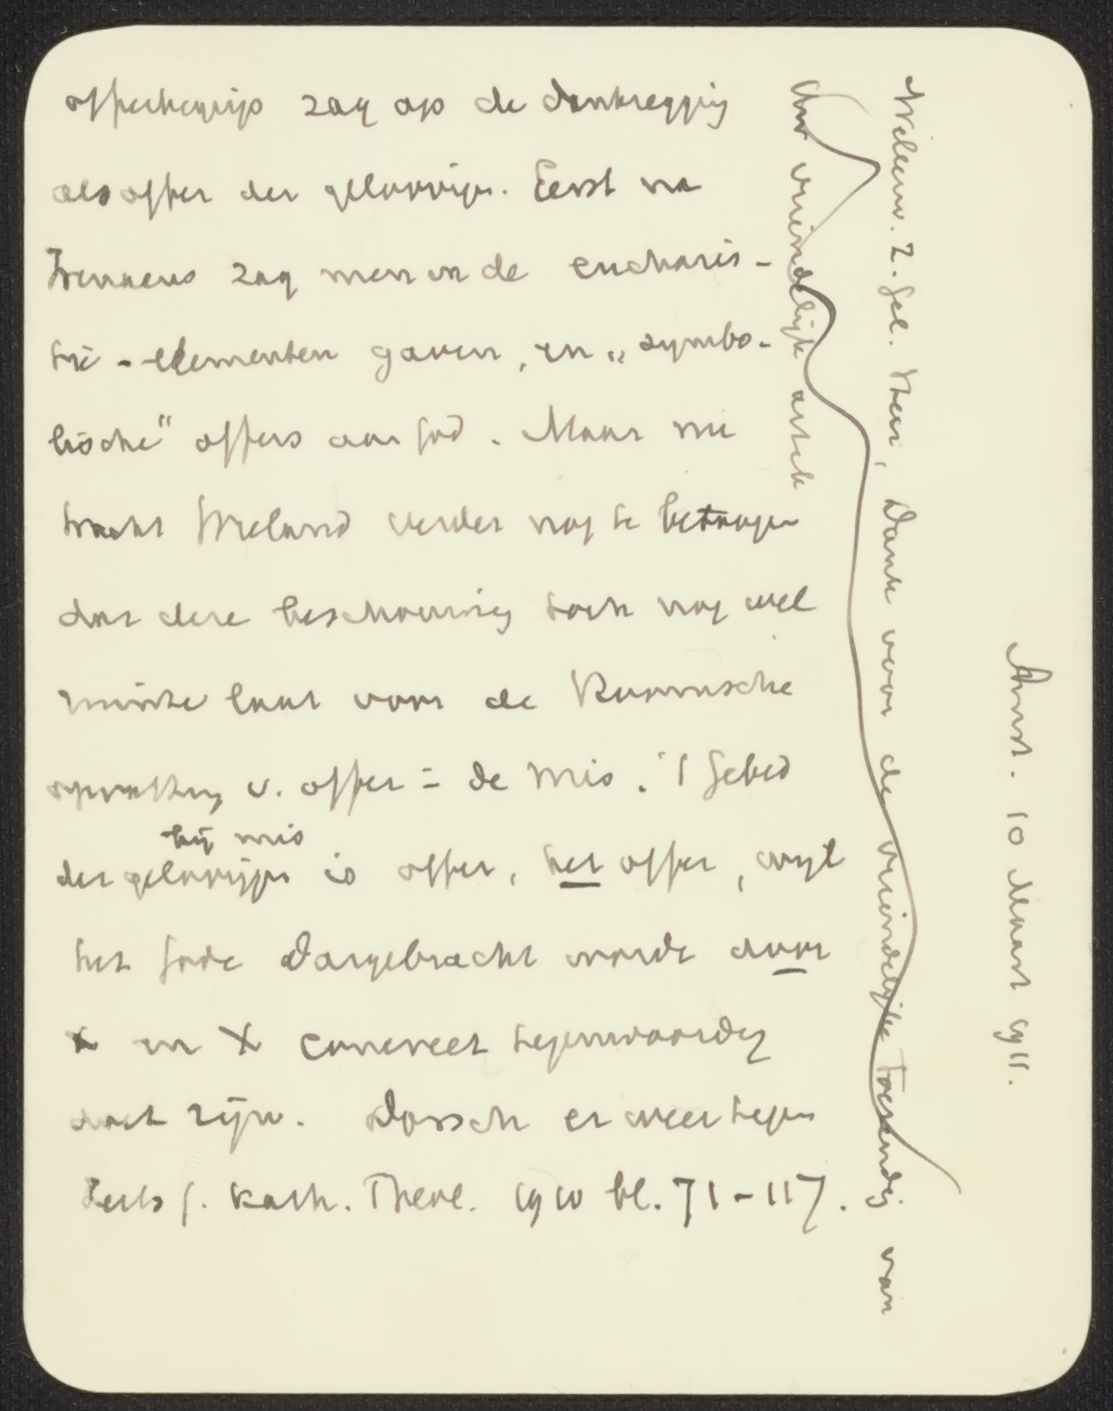 offerbegrip zag op de dankzegging
als offer der geloovigen. Eerst na
Irenaeus zag men in de eucharis-
tie-elementen gaven, en „symbo-
lische" offers aan God. Maar nu
tracht Wieland verder nog te betoogen
dat deze beschouwing toch nog wel
ruimte laat voor de Roomsche
opvatting v. offer = de mis. 't Gebed
bij mis
der geloovigen is offer, het offer, wijl
het Gode dargebracht wordt door
en X concreet tegenwoordig
doet zijn. Dorsch er weer tegen
Zeits f. kath. Theol. 1910 bl. 71-117.
Amst. 10 Maart 1911.
Weleerw. Z. Gel. Heer, Dank voor de vriendelijke toezending van
Uw vriendelijk artik